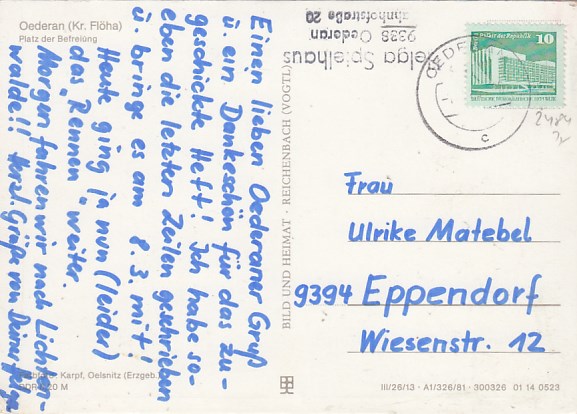 Oederan (Kr. Flöha)
Platz der Befreiung
Einen lieben Oederaner Gruß
u. ein Dankeschön für das zu-
geschickte Heft! Ich habe so-
eben die letzten Zeilen geschrieben
u. bringe es am 8.3. mit!
Heute ging ja nun (leider)
das "Rennen" weiter.
Morgen fahren wir nach Lichten-
walde!! Herzl. Grüße von
Karpf, Oelsnitz (Erzgeb.)
M
BILD UND HEIMAT · REICHENBACH (VOGTL)
Helga Spielhaus
9388 Oederan
Bahnhofstraße 20
OEDERAN
c
Palast der Republik
10
DEUTSCHE DEMOKRATISCHE REPUBLIK
2484
Frau
Ulrike Matebel
9394 Eppendorf
Wiesenstr. 12
III/26/13 · A1/326/81 · 300326 01 14 0523